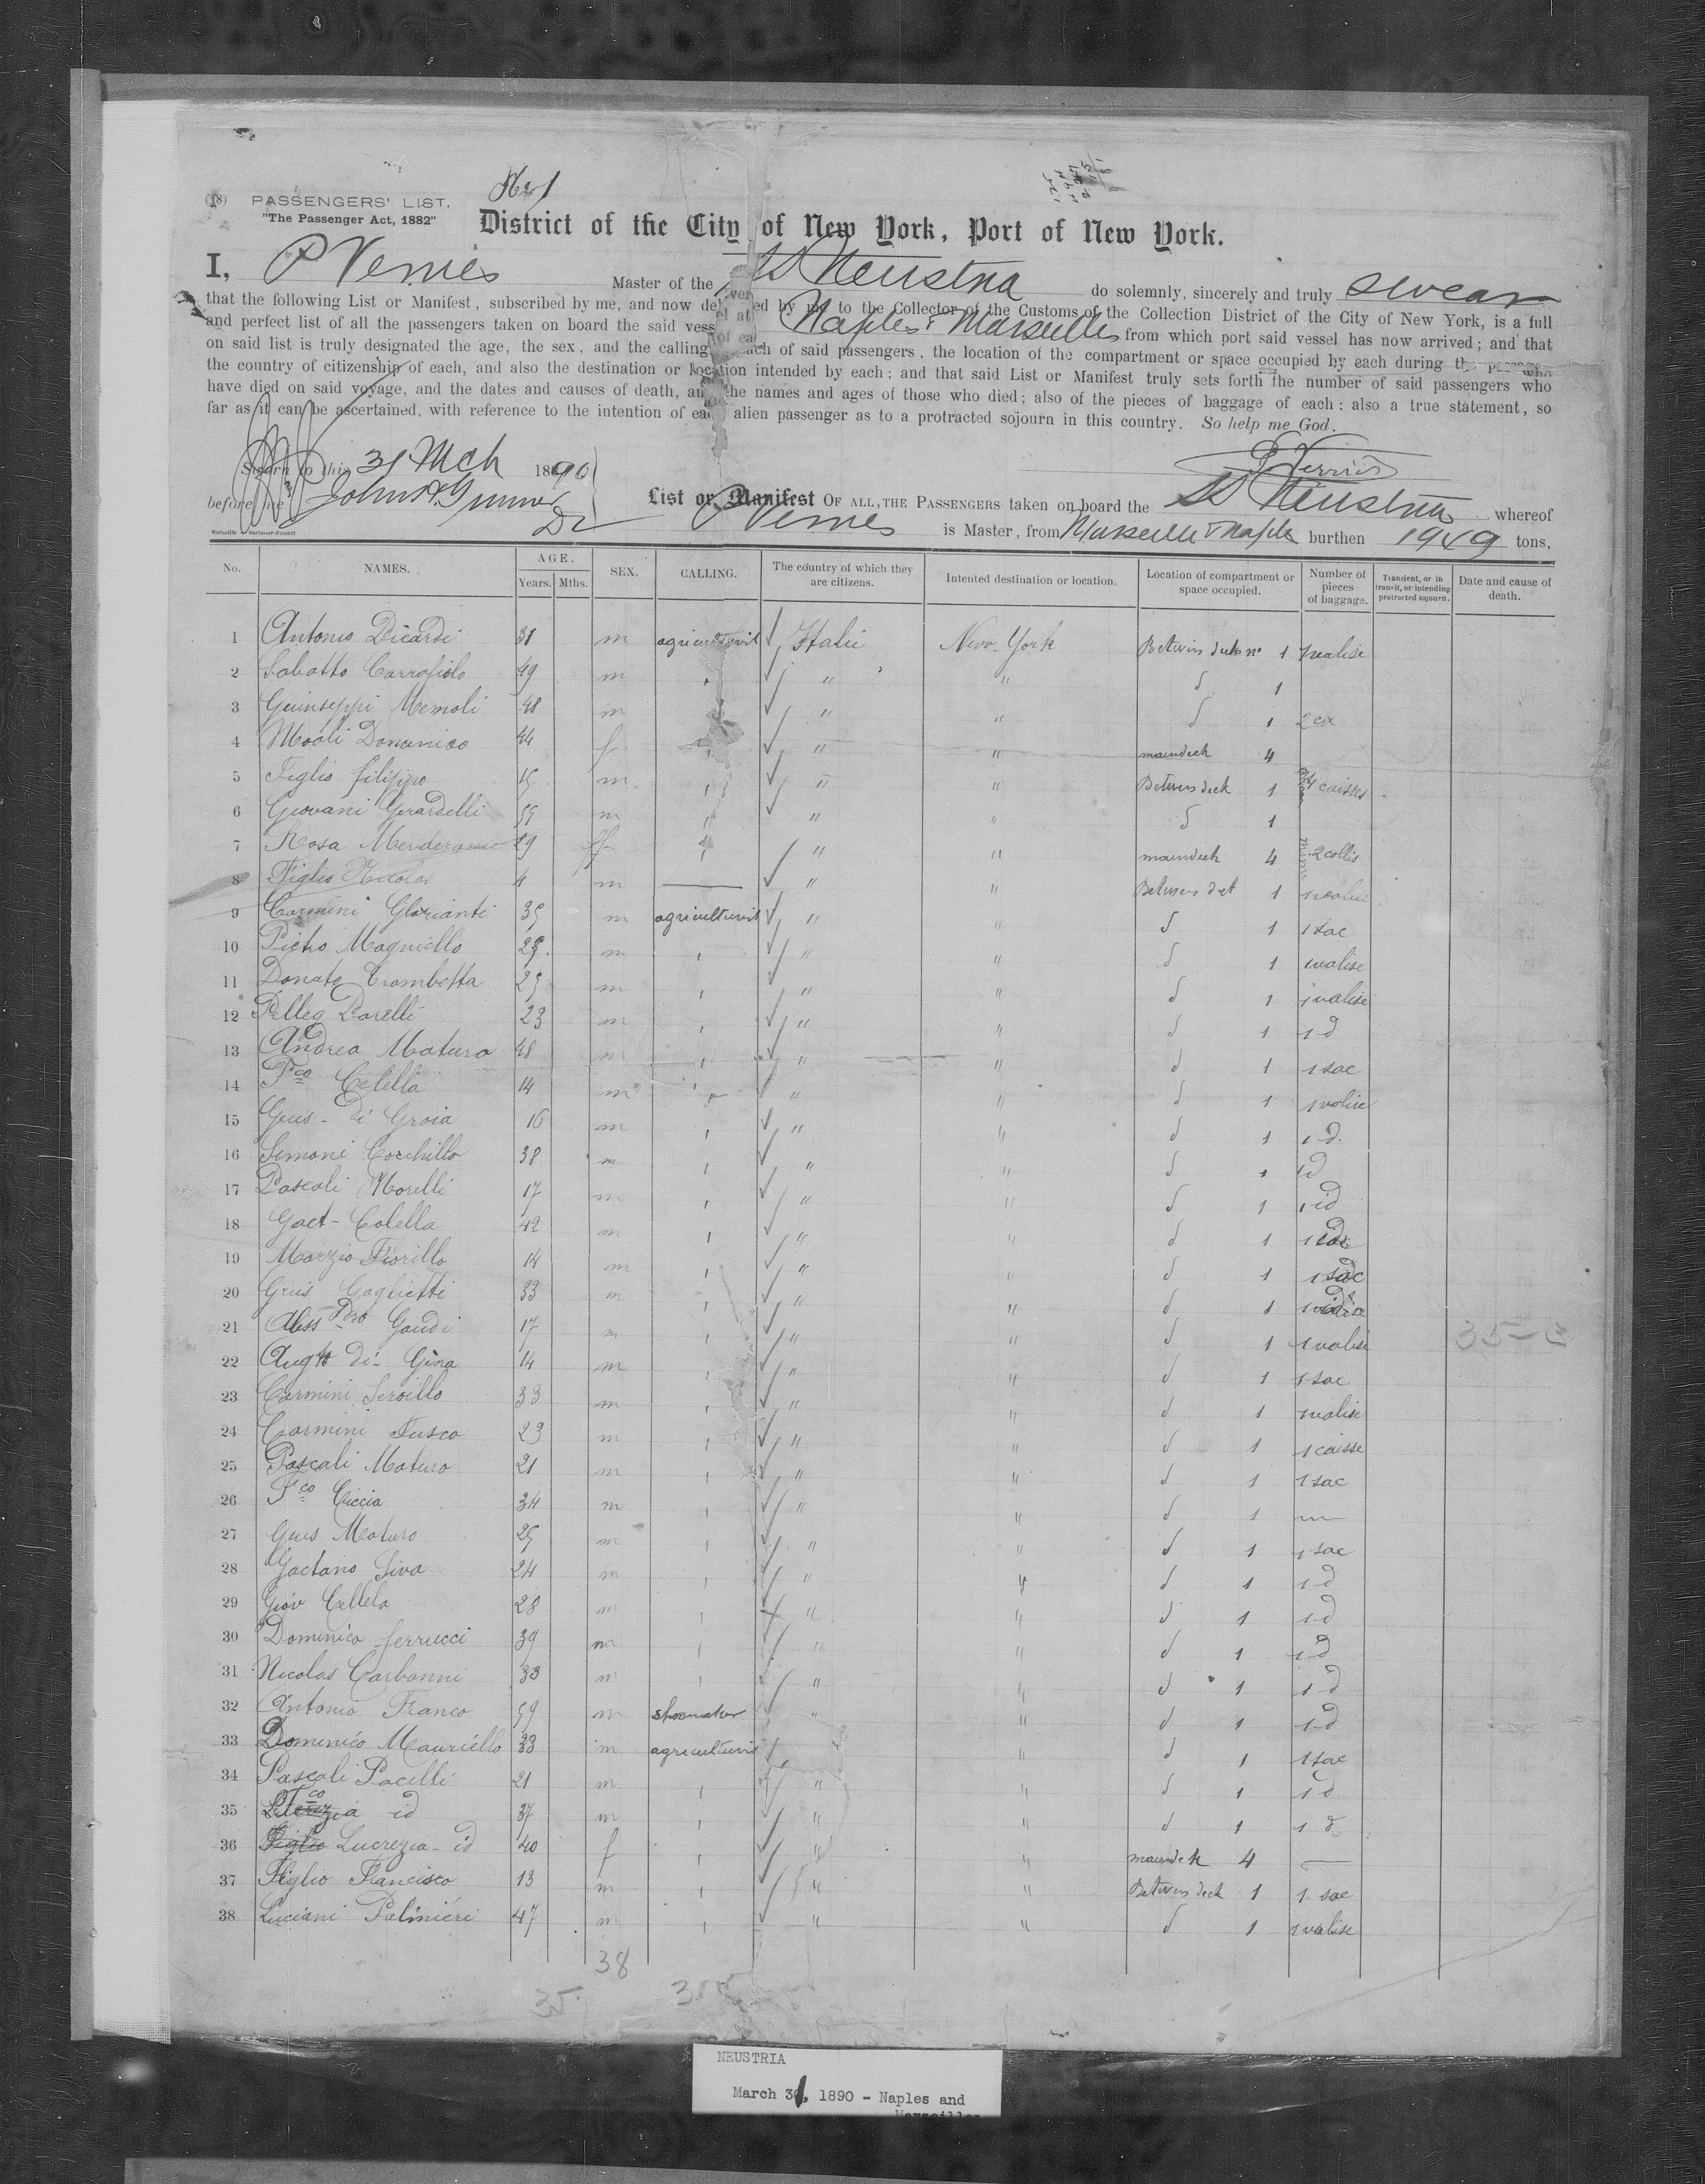 No 1
(18) PASSENGERS' LIST.
"The Passenger Act, 1882"
District of the City of New York, Port of New York.
I, P Vernis Master of the SS Neustria do solemnly, sincerely and truly swear
that the following List or Manifest, subscribed by me, and now delivered by me to the Collector of the Customs of the Collection District of the City of New York, is a full
and perfect list of all the passengers taken on board the said vessel at Naples & Marseilles from which port said vessel has now arrived; and that
on said list is truly designated the age, the sex, and the calling of each of said passengers, the location of the compartment or space occupied by each during the passage
the country of citizenship of each, and also the destination or location intended by each; and that said List or Manifest truly sets forth the number of said passengers who
have died on said voyage, and the dates and causes of death, and the names and ages of those who died; also of the pieces of baggage of each: also a true statement, so
far as it can be ascertained, with reference to the intention of each alien passenger as to a protracted sojourn in this country. So help me God.
Sworn to this 31 Mch 1890
P Vernis
before me
List or Manifest OF ALL, THE PASSENGERS taken on board the SS Neustria whereof
P Vernis is Master, from Marseille & Naples burthen 1949 tons,
No. NAMES. AGE. Years. Mths. SEX. CALLING. The country of which they are citizens. Intented destination or location. Location of compartment or space occupied. Number of pieces of baggage. Transient, or in transit, or intending protracted sojourn. Date and cause of death.
1 Antonio Dicardi 31 m agriculturist Italie New-York Betwens deck no 1 1 valise
2 Sabatto Carrafiolo 49 m " " d 1
3 Guinseppi Memoli 48 m " " d 1
4 Moali Domenico 44 f " " maindeck 4
5 Figlio filippo 15 m " " Betwens deck 1 4 caisses
6 Geovani Gerardelli 55 m " " d 1
7 Rosa 29 f " " maindeck 4 2 collis
8 Figlio Nicolas 4 m — " " Betwens deck 1 1 valise
9 Carmini Glorianti 35 m agriculturist " " d 1 1 sac
10 Pietro Magniello 25 m " " d 1 1 valise
11 Donato Trombetta 25 m " " d 1 1 valise
12 Pelleg Parelli 23 m " " d 1 1 d
13 Andrea Maturo 48 m " " d 1 1 sac
14 Fco Celella 14 m " " d 1 1 valise
15 Gius - di Groia 16 m " " d 1 1 d
16 Simoni Cocchillo 38 m " " d 1 1 d
17 Pascali Morelli 17 m " " d 1 1 id
18 Gaet - Colella 42 m " " d 1 1
19 Marzio Fiorillo 14 m " " d 1 1 sac
20 Gius Gaglietti 33 m " " d 1 1
21 Alessdro Gaudi 17 m " " d 1 1 valise 35-3
22 Augto di Gina 14 m " " d 1 1 sac
23 Carmini Seroillo 33 m " " d 1 1 valise
24 Carmini Fusco 23 m " " d 1 1 caisse
25 Pascali Maturo 21 m " " d 1 1 sac
26 Fco Ciccia 34 m " " d 1
27 Gius Maturo 25 m " " d 1 1 sac
28 Gaetano Siva 24 m " " d 1 1 d
29 Giov Cellela 28 m " " d 1 1 d
30 Dominico ferrucci 39 m " " d 1 1 d
31 Nicolas Carbonni 33 m " " d 1 1 d
32 Antonio Franco 59 m shoemaker " " d 1 1 d
33 Domenico Mauriello 33 m agriculturist " d 1 1 sac
34 Pascali Pacilli 21 m " " d 1 1 d
35 Fco id 37 m " " d 1 1 d
36 Figlio Lucrezia - id 40 f " " maindeck 4 —
37 Figlio Francisco 13 m " " Betwens deck 1 1 sac
38 Luciani Palmieri 47 m " " d 1 1 valise
38
35
NEUSTRIA
March 31, 1890 - Naples and
Marseilles